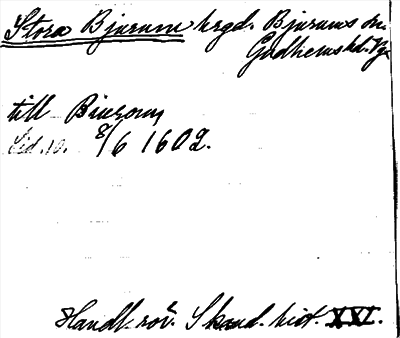 Stora Bjurum hrgd. Bjurums sn.
Gudhems hd. Vg.
till Biurom
8/6 1602.
Handl. rör. Skand. hist. XXI.